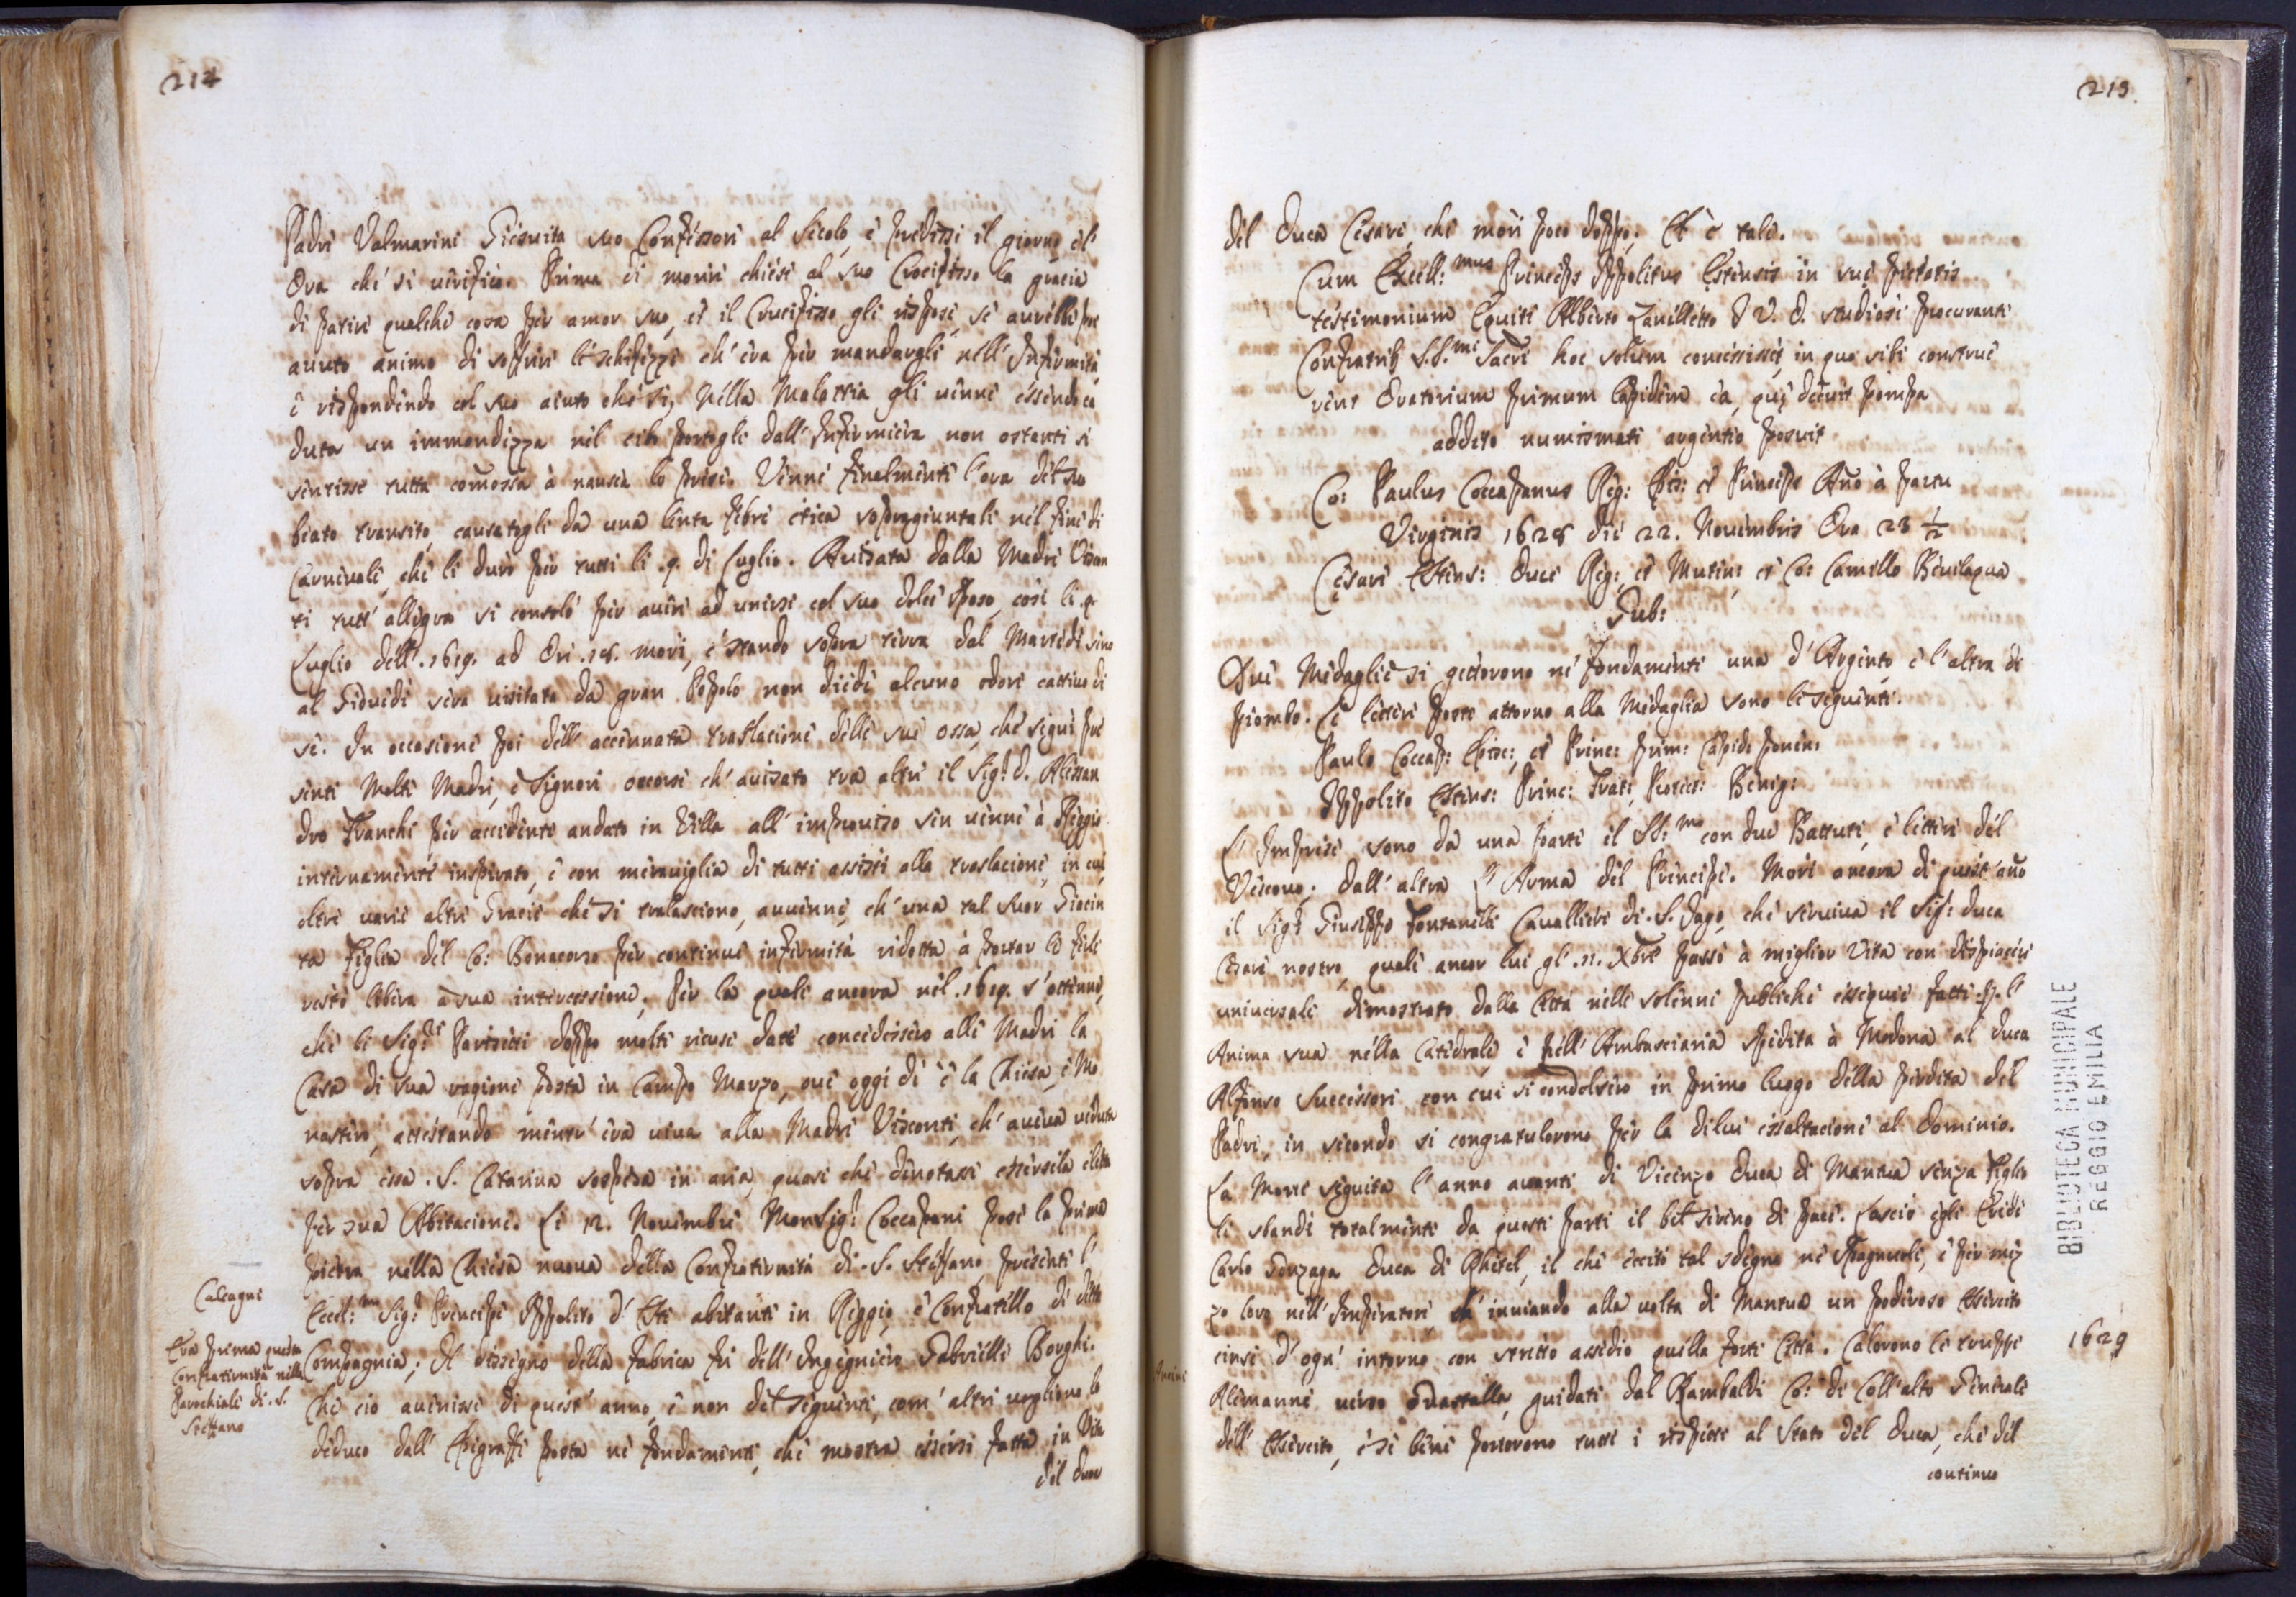 214
Padre Valmarini Giesuita suo Confessore al Secolo, e predisse il giorno, e l'
Ora che si uerificò. Prima di morire chiese al suo Crocifisso la gracia
di patire qualche cosa per amor suo, et il Crucifisso gli rispose, se aurebbe poi
auuto animo di soffrire le schifezze ch' era per mandargli nell' Infirmità,
e rispondendo col suo aiuto che si, Nella Malattia gli uenne essendo ca
duta un immondizza nel cibo portogli dall' Infirmiera non ostante si
sentisse tutta comossa à nausea lo prese. Venne finalmente l'ora del suo
beato transito, causatogli da una lenta febre etica sopragiuntali nel fine di
Carneuale, che li durò per tutti li 9. di Luglio. Auisata dalla Madre Viscon
ti tutt' allegra si consolò per auere ad unirsi col suo dolce Sposo, così li 9
Luglio dell' 1619. ad Ore 18. morì, e stando sopra terra dal Martedì sino
al Giouedì sera uisitata da gran Popolo non diede alcuno odore cattiuo di
se. In occasione poi dell' accennata traslacione delle sue ossa, che seguì pre
senti Molte Madri, e Signori occorse ch' auisato tra altri il Sig.r D. Alessan
dro Franchi per accidente andato in Villa all' improuiso sen uenne à Reggio
internamente inspirato, e con merauiglia di tutti assistè alla traslacione, in cui,
oltre uarie altre Gracie che si tralasciono, auuenne, ch' una tal Suor Giacin
ta Figlia del Co: Bonacorso per continue infirmità ridotta à portar le
restò libera à sua intercessione. Per la quale ancora nel 1619. s' ottenne,
che li Sig.ri Parisetti doppo molte ricuse date concedessero alle Madri la
Casa di sua ragione posta in Campo Marzo, oue oggi dì è la Chiesa, e Mo
nastero, attestando mentr' era uiua alla Madre Visconti, ch' aueua ueduta
sopra essa S. Catarina sospesa in aria, quasi che denotasse essersela eletta
per sua Abitacione. Li 12. Nouembre Monsig.r Coccapani pose la prima
pietra nella Chiesa nuoua della Confraternità di S. Steffano, presente l'
Calcagni
Eccel:mo Sig.r Principe Ippolito d' Este abitante in Reggio, e Confratello di detta
Era prima questa
Confraternità nella
Parochiale di S.
Steffano
Compagnia; Il dissegno della fabrica fu dell' Ingegniero Gabrielle Borghi.
Che ciò auenisse di quest' anno, e non del seguente, com' altri uogliono lo
deduco dall' Epigraffe posta ne fondamenti, che mostra essersi fatta in Vita
del Duca
219.
del Duca Cesare, che morì poco doppo. Et è tale.
Cum Excell:mus Princeps Ippolitus Estensis in sue pietatis
testimonium Equite Alberto Zanelletto I. V. D. studiose procurante
Confratrib. SS.mi Sacri hoc solum concessisset, in quo sibi construe
rent Oratorium primum lapidem ea, que decuit pompa
addito numismate argenteo posuit
Co: Paulus Coccapanus Reg: Epis: et Princeps Año à partu
Virginis 1628 die 22. Nouembris Ora 23 1/2
Cesare Estens: Duce Reg:, et Mutin: et Co: Camillo Beuilaqua
Gub:
Due Medaglie si gettorono ne' fondamenti una d' Argento, e l' altra di
piombo. Le lettere poste attorno alla Medaglia sono le seguenti.
Paulo Coccap: Episc:, et Princ: prim: Lapide ponen:
Ippolito Estens: Princ: Frat:, Protect: Benig:
L' Imprese sono da una parte il SS:mo con due Battuti, e lettere del
Vescouo; dall' altra l' Arma del Principe. Morì ancora di quest' año
il Sig.r Giuseppo Fontanelli Cavalliere di S. Iago, che seruiua il Sig: Duca
Cesare nostro, quale ancor lui gl' 11. Xbre passò à miglior Vita con dispiacere
uniuersale dimostrato dalla Città nelle solenni publiche essequie fatte p. l'
Anima sua nella Catedrale e nell' Ambasciaria spedita à Modona al Duca
Alfonso Successore con cui si condolsero in primo luogo della perdita del
Padre, in secondo si congratulorono per la dilui essaltacione al Dominio.
La Morte seguita l' anno auanti di Vicenzo Duca di Mantua senza Figlio
li sbandì totalmente da queste parti il bel sereno di pace. Lasciò egli Erede
Carlo Gonzaga Duca di Rhetel, il che eccitò tal sdegno ne Spagnuoli, e per mez
zo loro nell' Imperatore, ch' inuiando alla uolta di Mantua un poderoso Essercito
cinse d' ogn' intorno con stretto assedio quella forte Città. Calorono le truppe
1629
Alemanne uerso Guastalla, guidate dal Rambaldi Co: di Coll'alto Generale
dell' Essercito, e se bene portorono tutti i rispetti al Stato del Duca, che del
continuo
BIBLIOTECA MUNICIPALE
REGGIO EMILIA